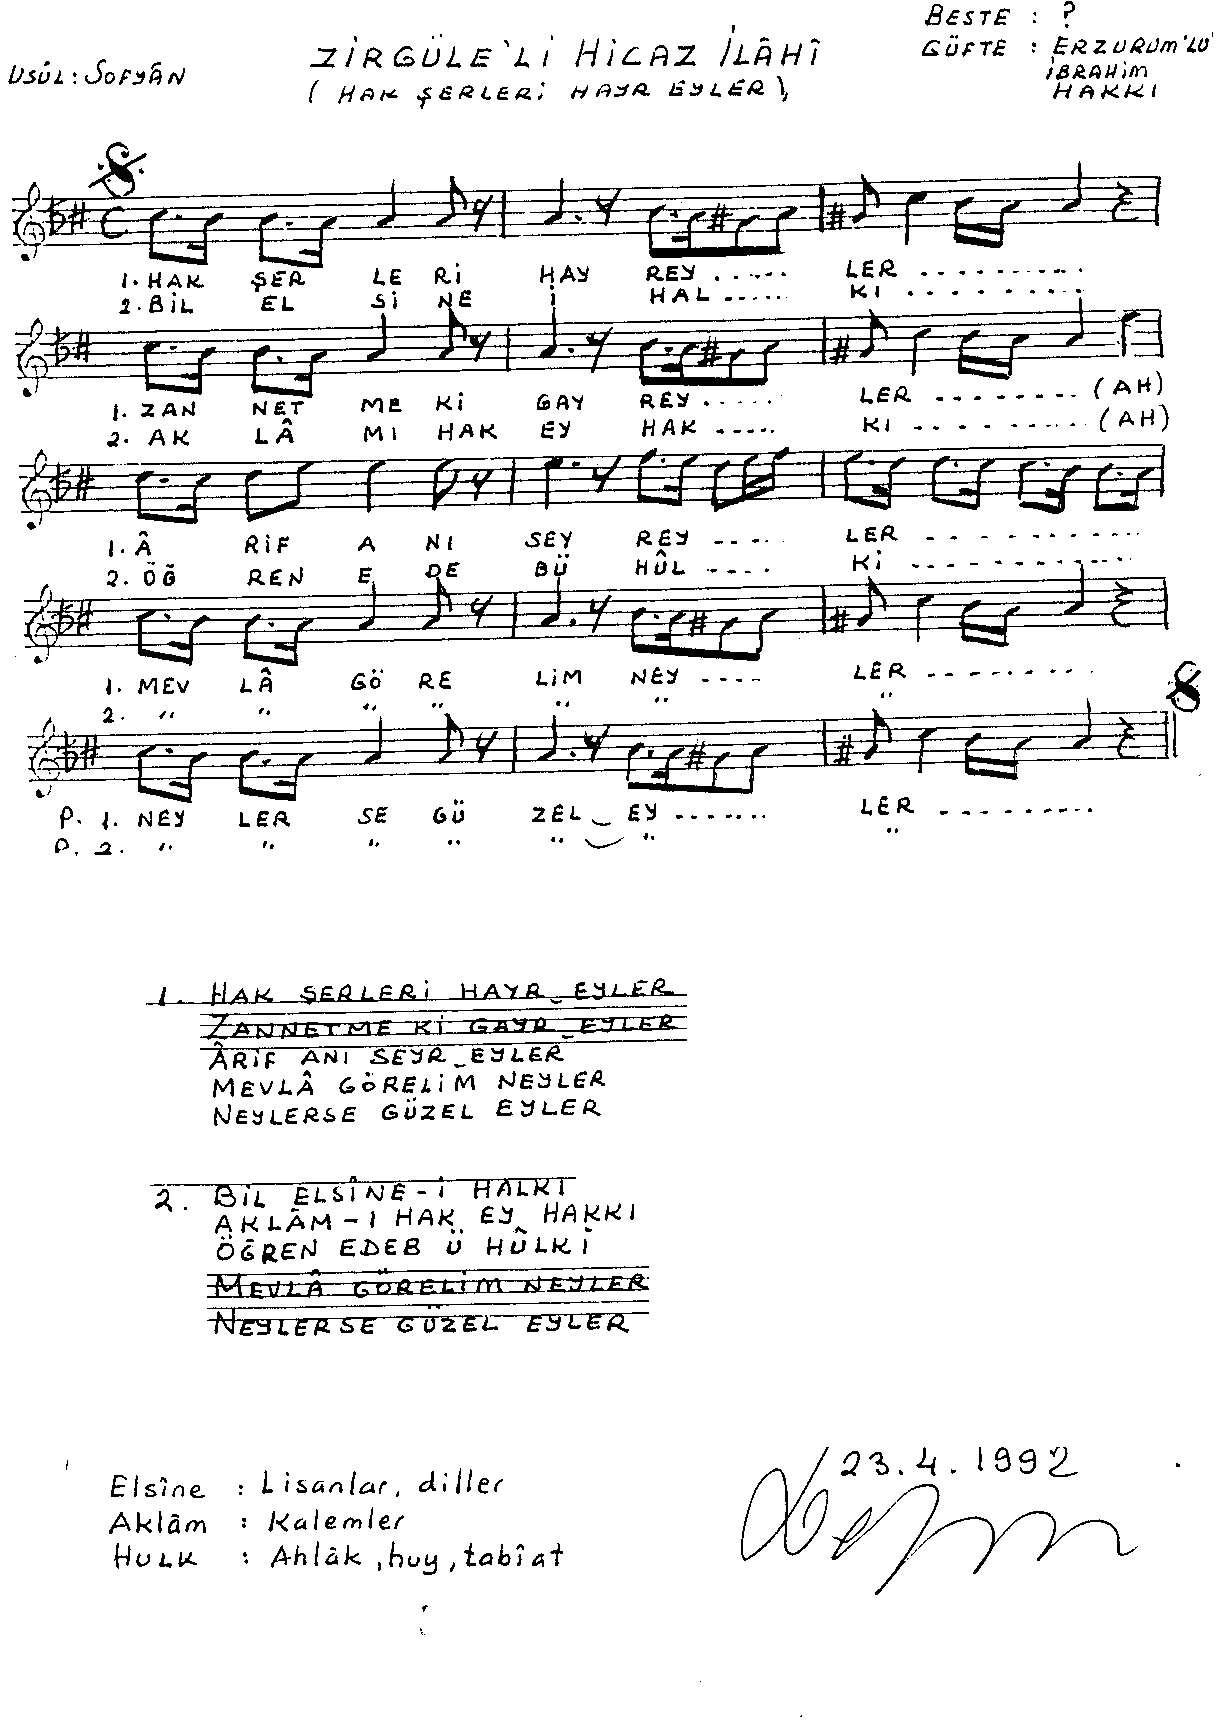 BESTE : ?
USÛL : SOFYÂN
ZİRGÜLE'Lİ HİCAZ İLÂHÎ
GÜFTE : ERZURUM'LU
İBRAHİM
HAKKI
( HAK ŞERLERİ HAYR EYLER )
1. HAK ŞER LE Rİ HAY REY ...... LER ..........
2. BİL EL Sİ NE İ HAL ...... KI ..........
1. ZAN NET ME Kİ GAY REY ...... LER ........ (AH)
2. AK LÂ MI HAK EY HAK ...... KI .......... (AH)
1. Â RİF A NI SEY REY ...... LER ..........
2. ÖĞ REN E DE BÜ HÛL ..... Kİ ..........
1. MEV LÂ GÖ RE LİM NEY .... LER ..........
2. " " " " " " "
P. 1. NEY LER SE GÜ ZEL EY ....... LER ..........
P. 2. " " " " " " "
1. HAK ŞERLERİ HAYR EYLER
ZANNETME Kİ GAYR EYLER
ÂRİF ANI SEYR EYLER
MEVLÂ GÖRELİM NEYLER
NEYLERSE GÜZEL EYLER
2. BİL ELSÎNE-İ HALKI
AKLÂM-I HAK EY HAKKI
ÖĞREN EDEB Ü HÛLKİ
MEVLÂ GÖRELİM NEYLER
NEYLERSE GÜZEL EYLER
23.4.1992
Elsîne : Lisanlar, diller
Aklâm : Kalemler
HULK : Ahlâk, huy, tabîat